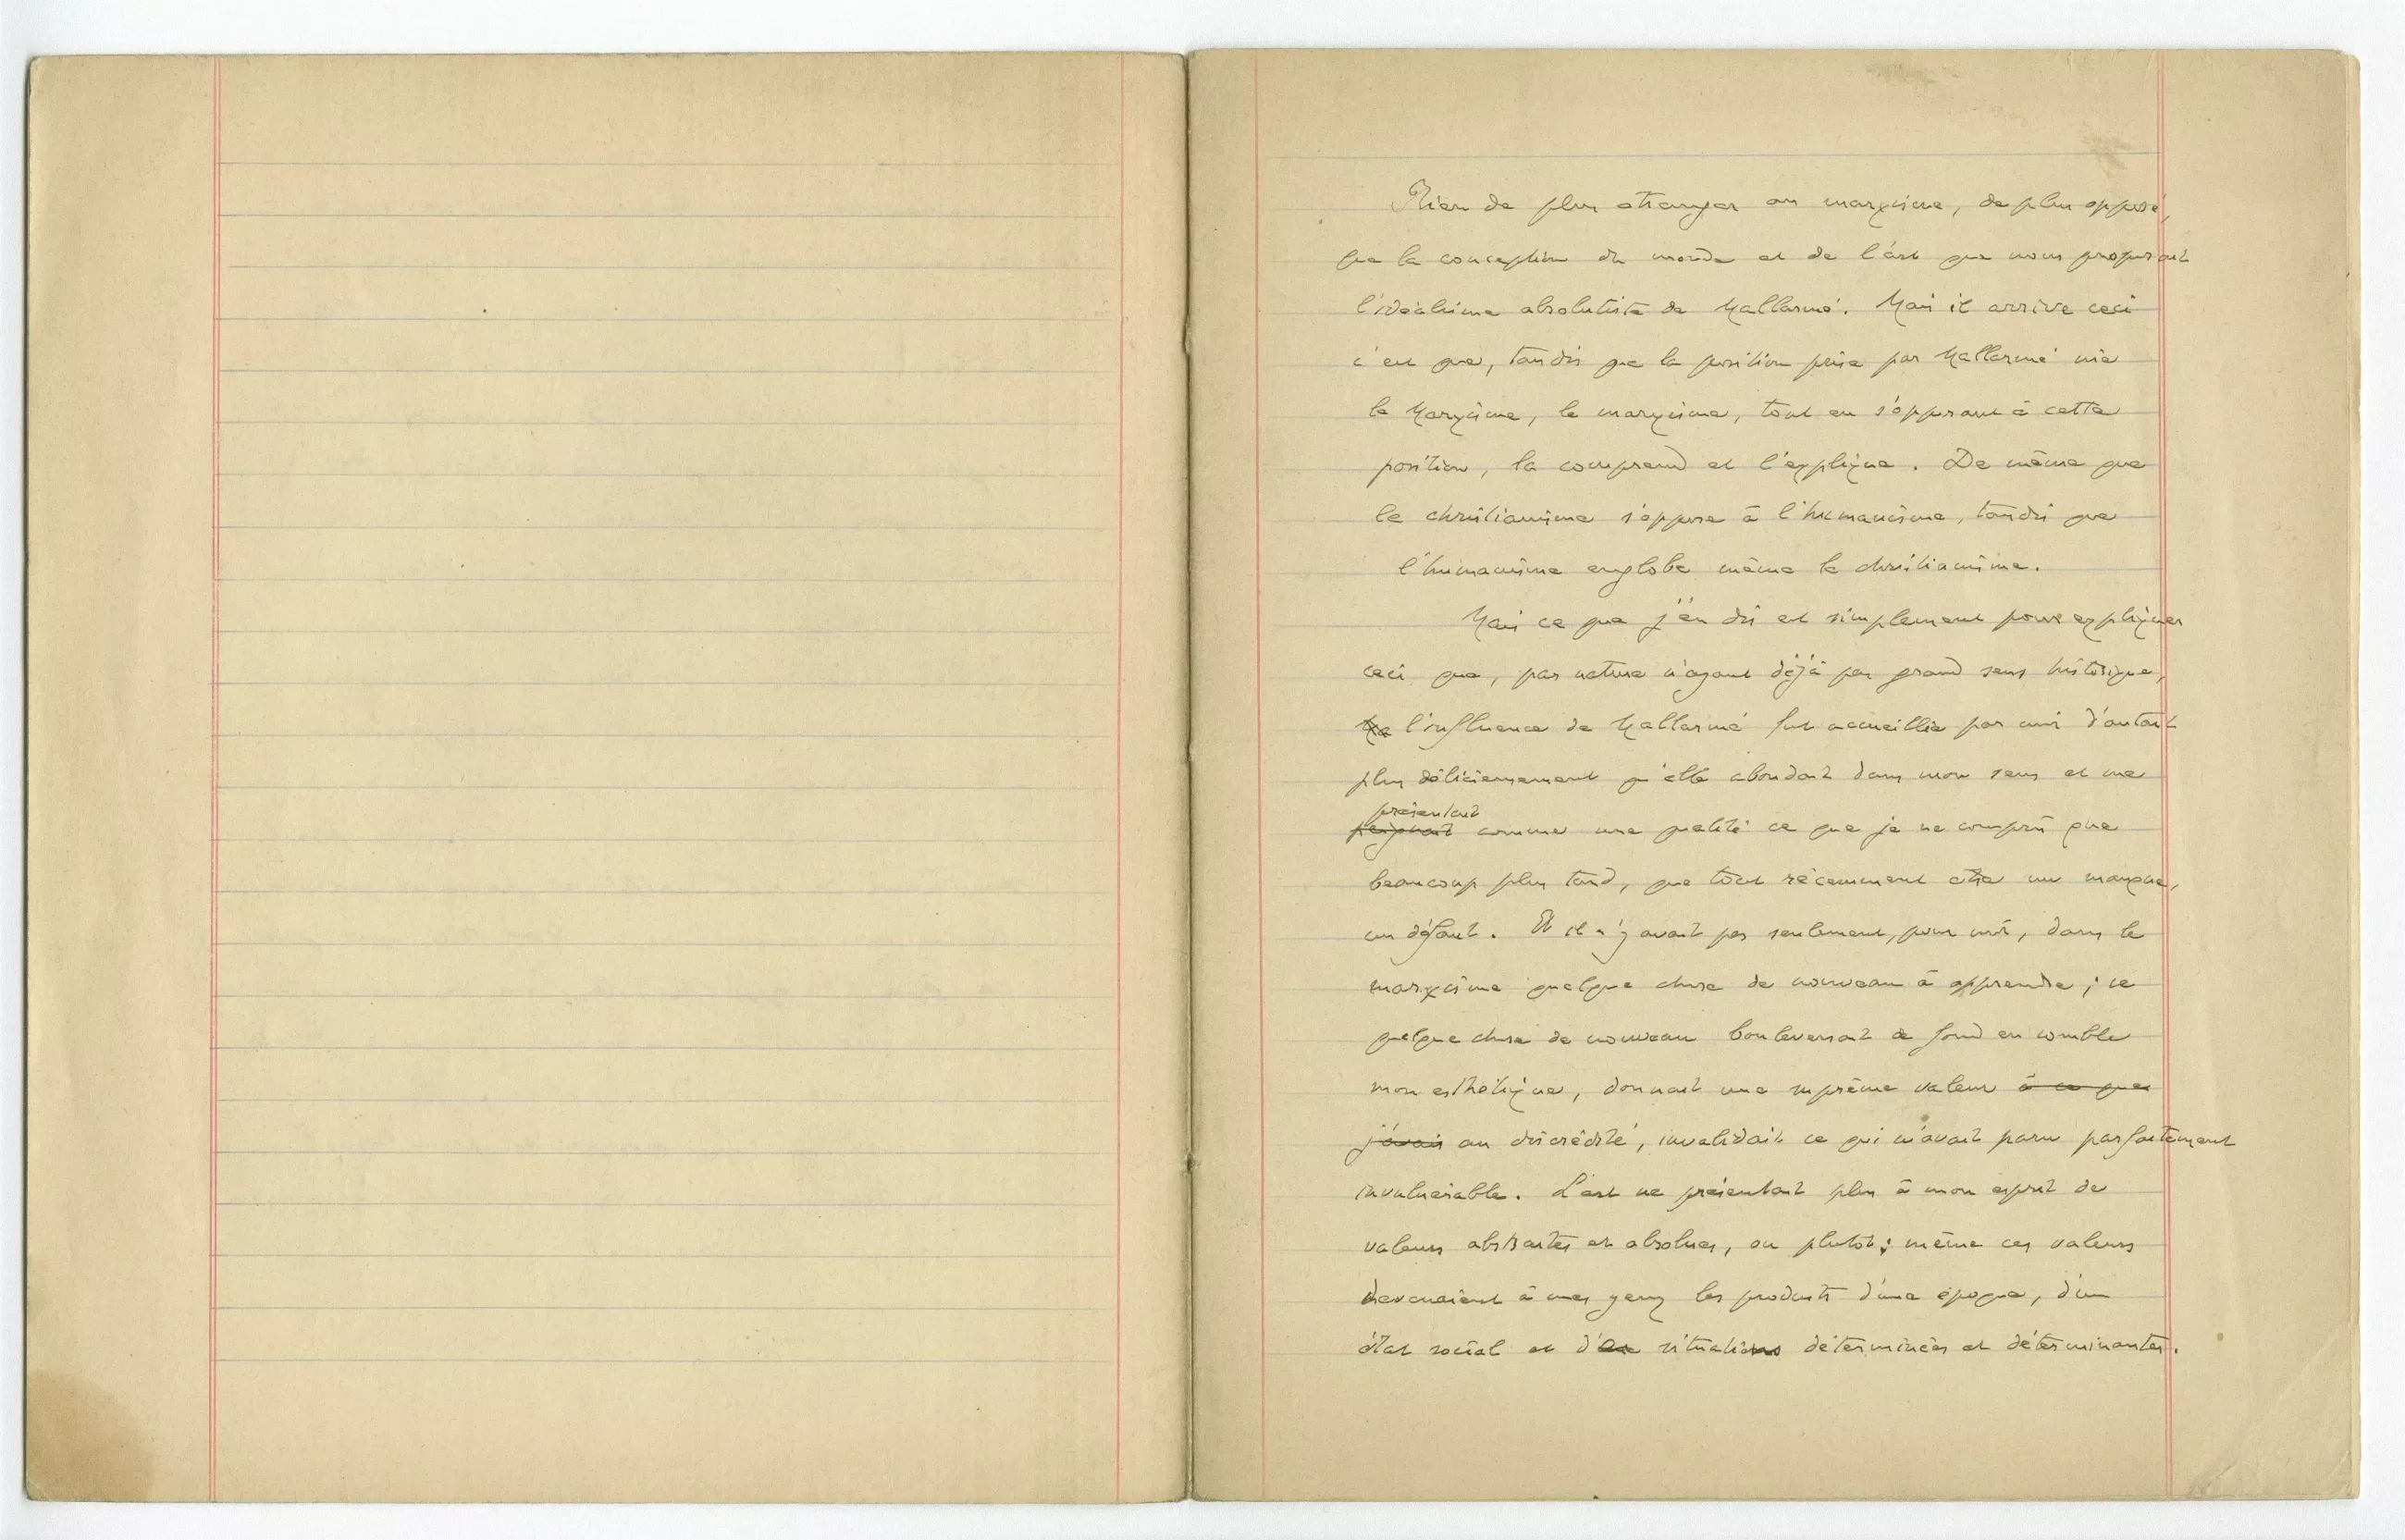 Rien de plus étranger au marxisme, de plus opposé,
que la conception du monde et de l'art que nous proposait
l'idéalisme absolutiste de Mallarmé. Mais il arrive ceci
c'est que, tandis que la position prise par Mallarmé nie
le Marxisme, le marxisme, tout en s'opposant à cette
position, la comprend et l'explique. De même que
le christianisme s'oppose à l'humanisme, tandis que
l'humanisme englobe même le christianisme.
Mais ce que j'en dis est simplement pour expliquer
ceci que, par nature n'ayant déjà pas grand sens historique,
l'influence de Mallarmé fut accueillie par moi d'autant
plus délicieusement qu'elle abondait dans mon sens et me
présentait
peignait comme une qualité ce que je ne compris que
beaucoup plus tard, que tout récemment être un manque,
un défaut. Et il n'y avait pas seulement, pour moi, dans le
marxisme quelque chose de nouveau à apprendre ; ce
quelque chose de nouveau bouleversait de fond en comble
mon esthétique, donnait une suprême valeur à ce que
j'avais au discrédité, invalidait ce qui m'avait paru parfaitement
invulnérable. L'art ne présentait plus à mon esprit de
valeurs abstraites et absolues, ou plutôt ; même ces valeurs
devenaient à mes yeux les produits d'une époque, d'un
état social et de situations déterminées et déterminantes.